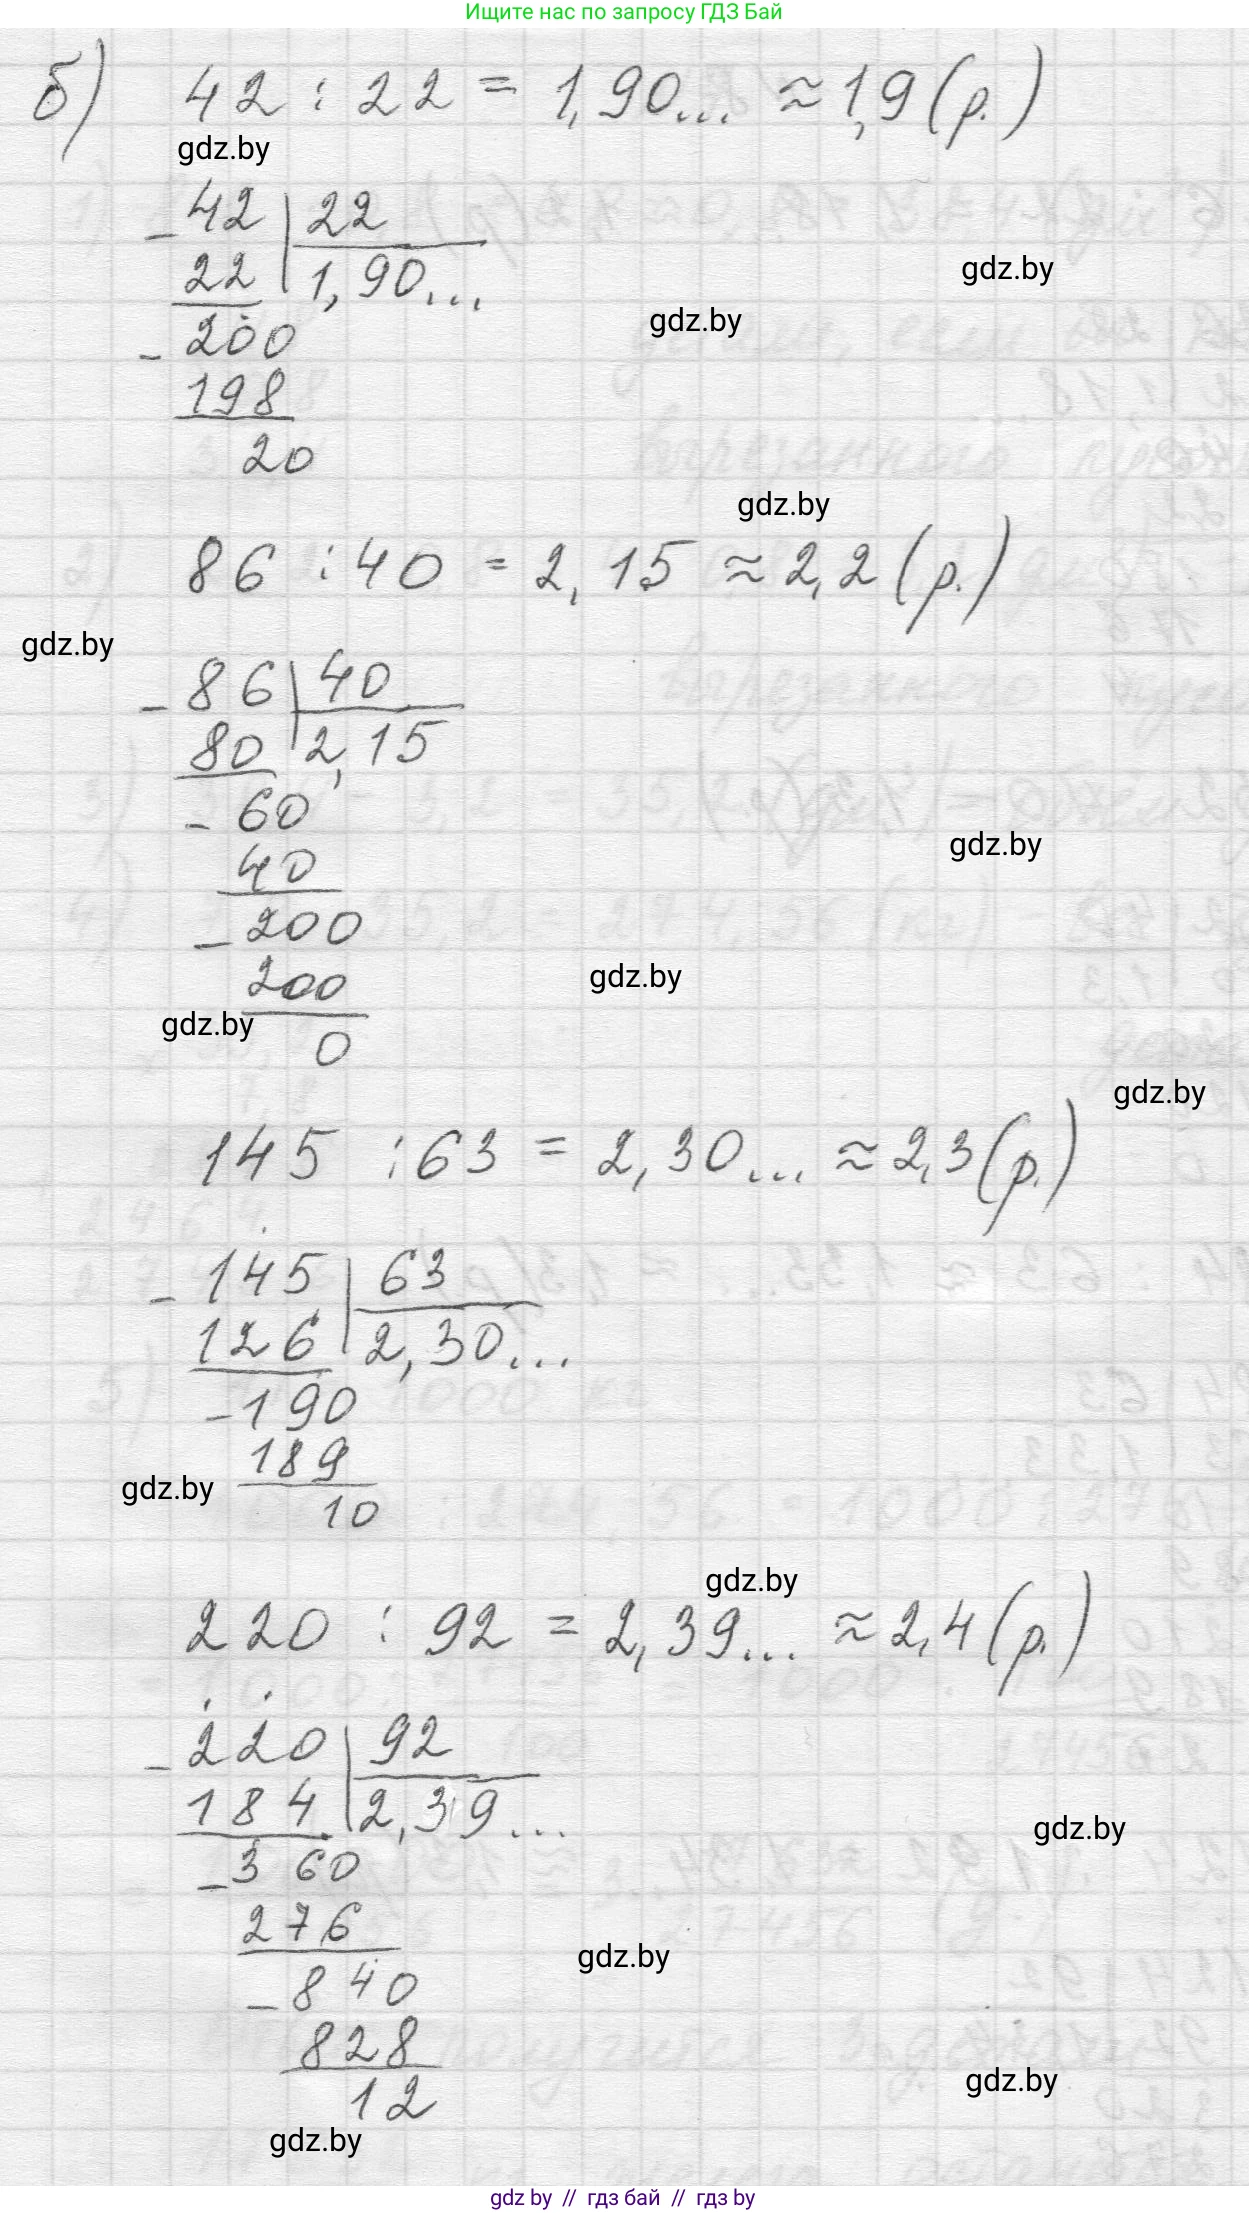 Ищите нас по запросу ГДЗ Бай
б) 42 : 22 = 1,90... ≈ 1,9 (р.)
gdz.by
- 42 | 22
22 | 1,90...
gdz.by
gdz.by
- 200
198
20
gdz.by
86 : 40 = 2,15 ≈ 2,2 (р.)
gdz.by
- 86 | 40
80 | 2,15
- 60
gdz.by
40
- 200
gdz.by
200
gdz.by
0
gdz.by
145 : 63 = 2,30... ≈ 2,3 (р.)
- 145 | 63
126 | 2,30...
- 190
189
gdz.by
10
gdz.by
220 : 92 = 2,39... ≈ 2,4 (р.)
- 220 | 92
184 | 2,39...
gdz.by
- 360
276
gdz.by
- 840
828
gdz.by
12
gdz.by
gdz by // гдз бай // gdz by